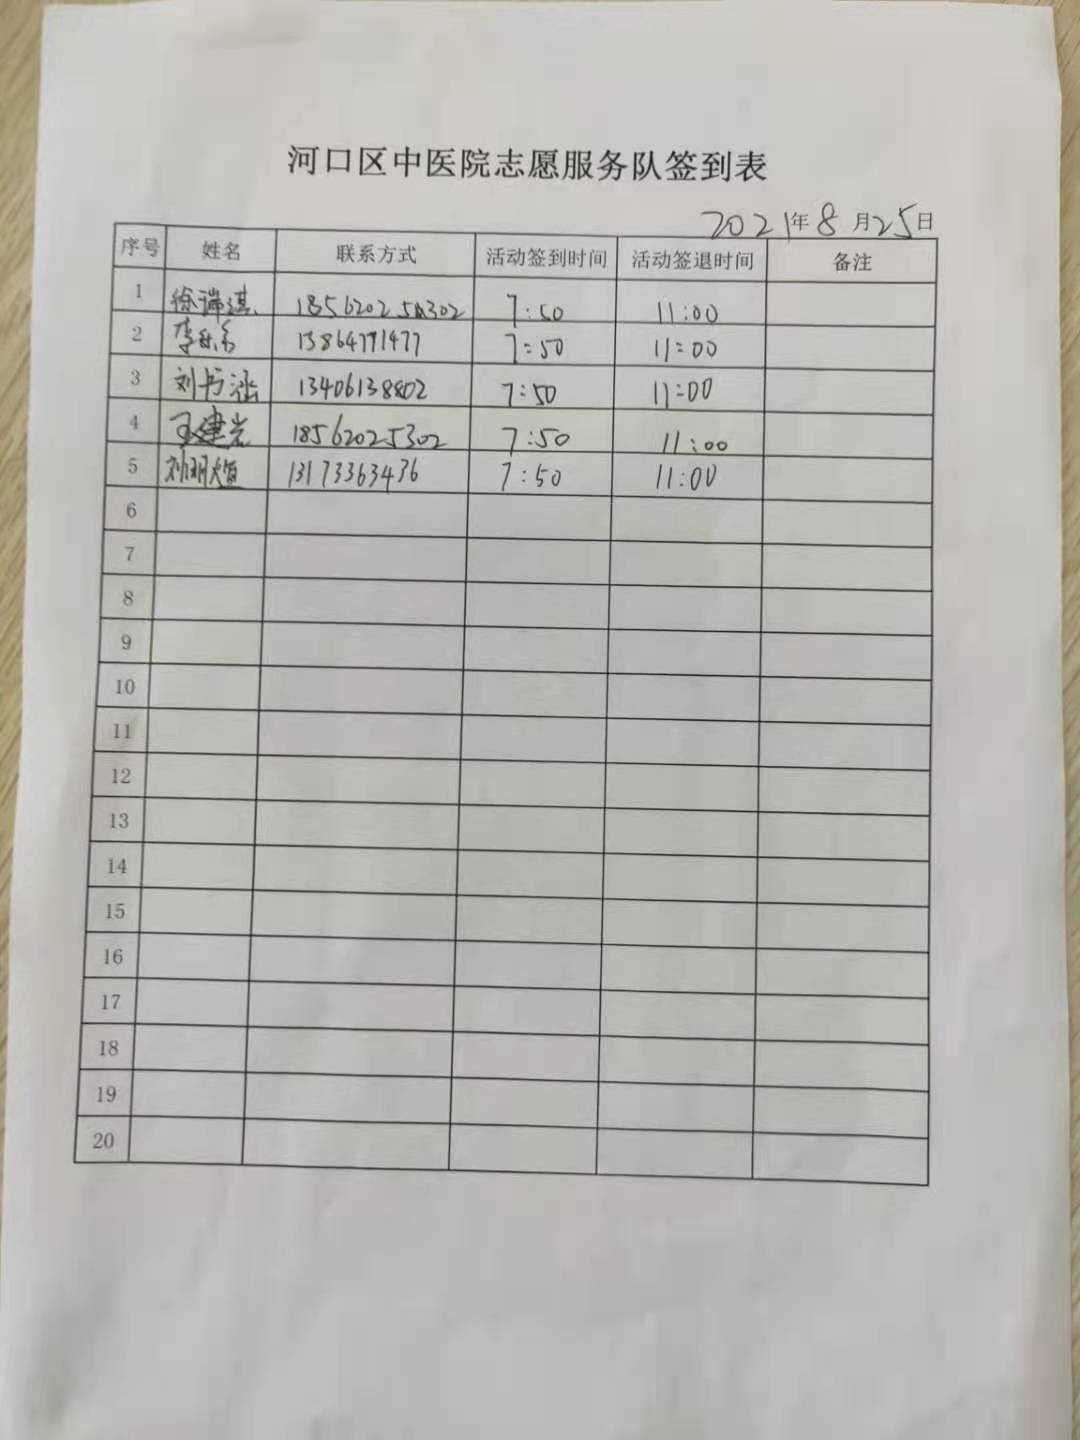 河口区中医院志愿服务队签到表
2021年8月25日
序号 姓名 联系方式 活动签到时间 活动签退时间 备注
1 徐瑞琪 7:50 11:00
2 7:50 11:00
3 刘书涵 13406138802 7:50 11:00
4 王建岩 18562025302 7:50 11:00
5 刘明煊 13173363476 7:50 11:00
6
7
8
9
10
11
12
13
14
15
16
17
18
19
20